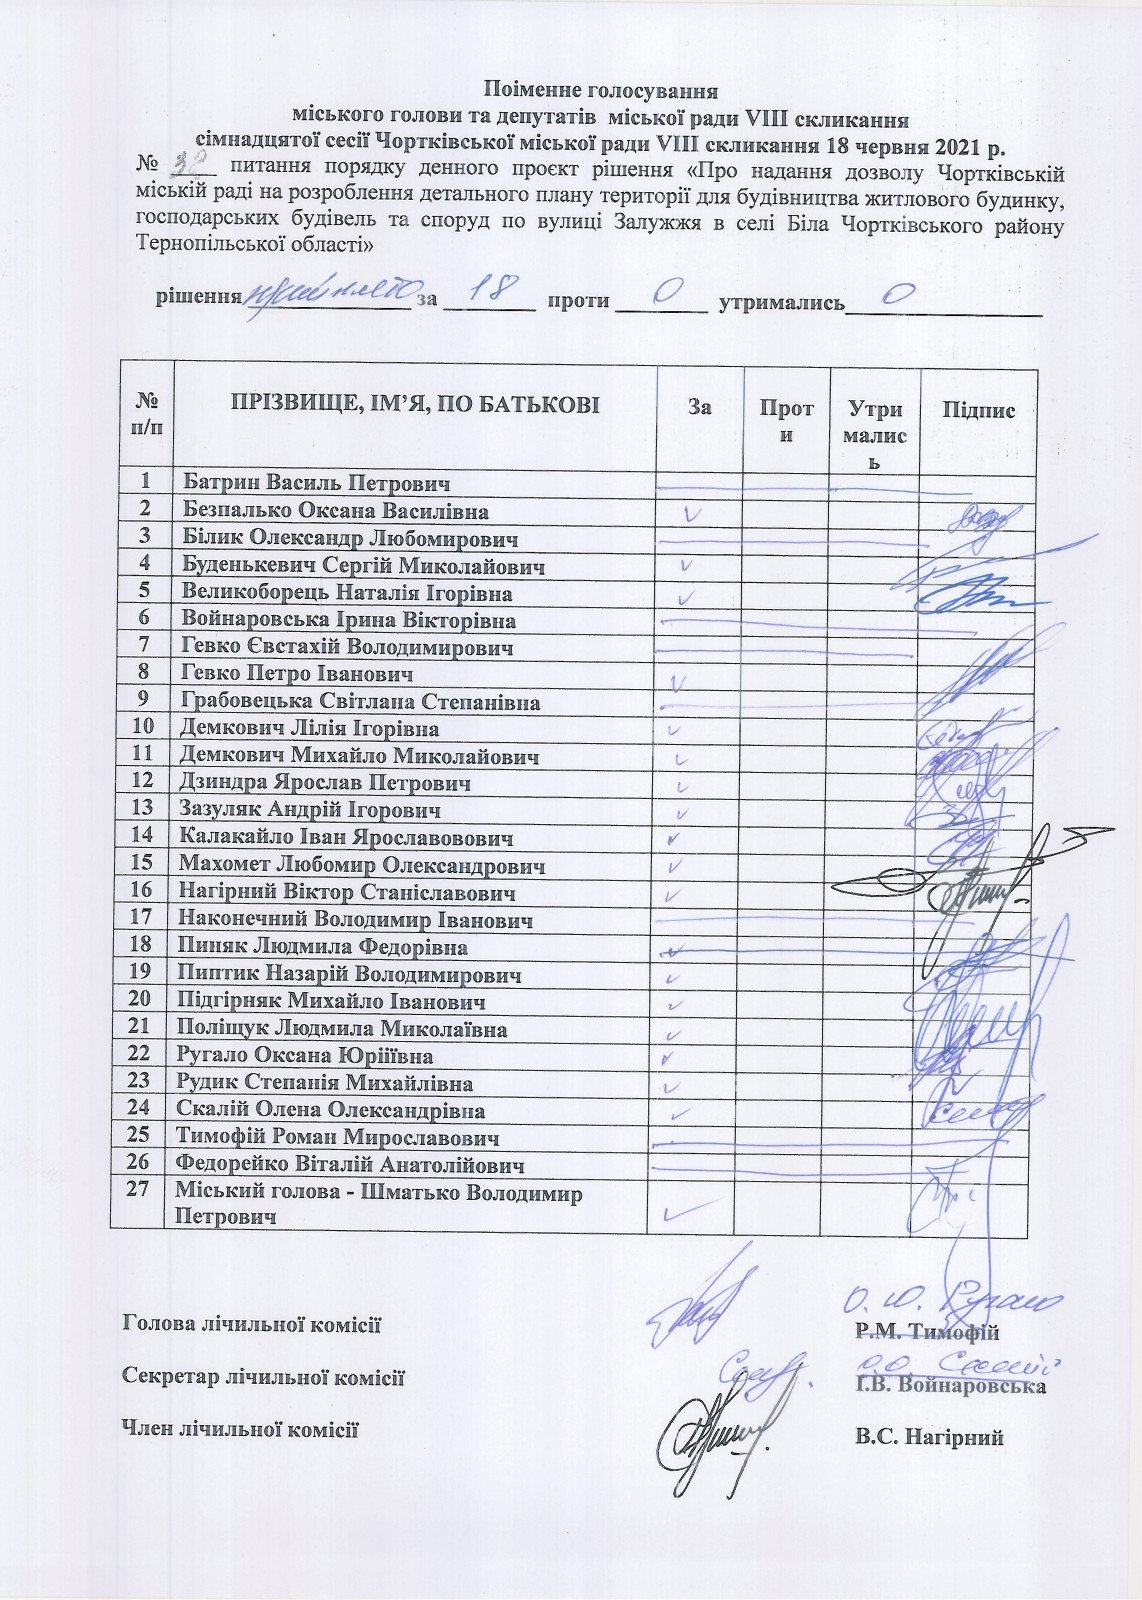 Поіменне голосування
міського голови та депутатів міської ради VIII скликання
сімнадцятої сесії Чортківської міської ради VIII скликання 18 червня 2021 р.
№ 38 питання порядку денного проєкт рішення «Про надання дозволу Чортківській
міській раді на розроблення детального плану території для будівництва житлового будинку,
господарських будівель та споруд по вулиці Залужжя в селі Біла Чортківського району
Тернопільської області»
рішення прийнято за 18 проти 0 утримались 0
№ п/п ПРІЗВИЩЕ, ІМ’Я, ПО БАТЬКОВІ За Прот и Утри малис ь Підпис
1 Батрин Василь Петрович
2 Безпалько Оксана Василівна
3 Білик Олександр Любомирович
4 Буденькевич Сергій Миколайович
5 Великоборець Наталія Ігорівна
6 Войнаровська Ірина Вікторівна
7 Гевко Євстахій Володимирович
8 Гевко Петро Іванович
9 Грабовецька Світлана Степанівна
10 Демкович Лілія Ігорівна
11 Демкович Михайло Миколайович
12 Дзиндра Ярослав Петрович
13 Зазуляк Андрій Ігорович
14 Калакайло Іван Ярославовович
15 Махомет Любомир Олександрович
16 Нагірний Віктор Станіславович
17 Наконечний Володимир Іванович
18 Пиняк Людмила Федорівна
19 Пиптик Назарій Володимирович
20 Підгірняк Михайло Іванович
21 Поліщук Людмила Миколаївна
22 Ругало Оксана Юріїївна
23 Рудик Степанія Михайлівна
24 Скалій Олена Олександрівна
25 Тимофій Роман Мирославович
26 Федорейко Віталій Анатолійович
27 Міський голова - Шматько Володимир
Петрович
О. Ю. Ругало
Голова лічильної комісії Р.М. Тимофій
О.О. Скалій
Секретар лічильної комісії І.В. Войнаровська
Член лічильної комісії В.С. Нагірний